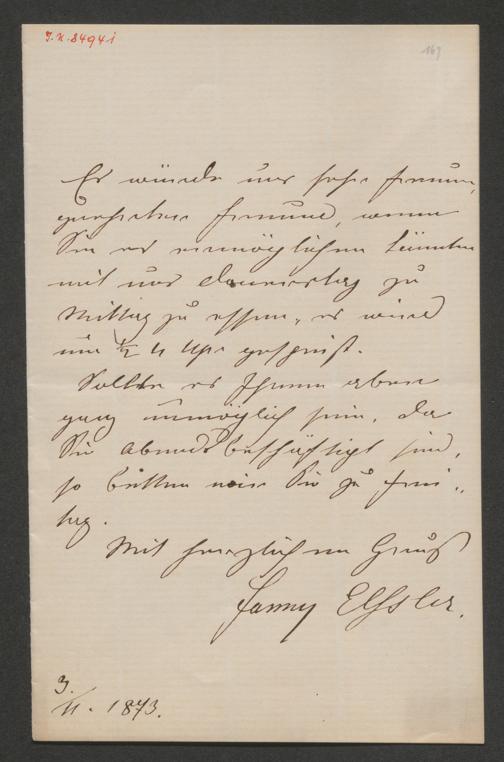 J.N. 84941
169
Es würde uns sehr freuen,
geehrtester Freund, wenn
Sie es ermöglichen könnten
mit uns Donnerstag zu
Mittag zu essen, es wird
um ½ 4 Uhr gespeist.
Sollte es Ihnen aber
ganz unmöglich sein, da
Sie Abends beschäftigt sind,
so bitten wir Sie zu Frei„
tag.
Mit herzlichem Gruß
Fanny Elssler.
3.
/11. 1873.